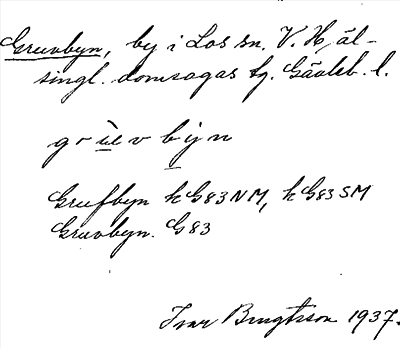 Gruvbyn, by i Los sn. V. Häl-
singl. domsagas tg. Gävleb. l.
grùv bijn
Grufbyn kG83NM, kG83SM
Gruvbyn. G83
Ivar Bengtsson 1937.